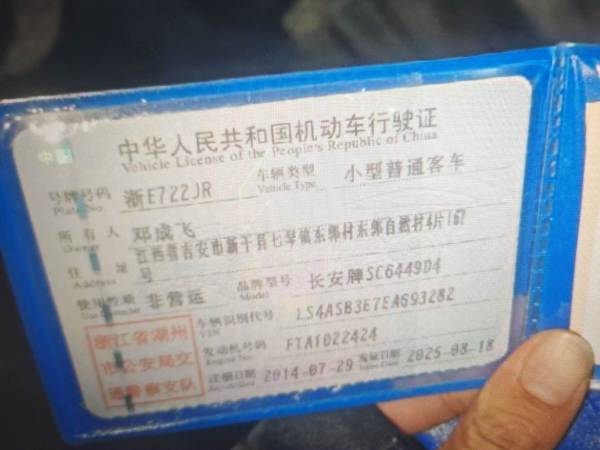 中华人民共和国机动车行驶证
Vehicle License of the People's Republic of China
号牌号码 浙E722JR 车辆类型 小型普通客车
Plate No. Vehicle Type
所有人 邓成飞
Owner
住址 江西省吉安市新干县七琴镇东郭村东郭自然村4片167号
Address
使用性质 非营运 品牌型号 长安牌SC6449D4
Use Character Model
车辆识别代号 LS4ASB3E7EA693282
VIN
发动机号码 FTA1022424
Engine No.
注册日期 2014-07-29 发证日期 2025-08-18
Register Date Issue Date
浙江省湖州
市公安局交
通警察支队